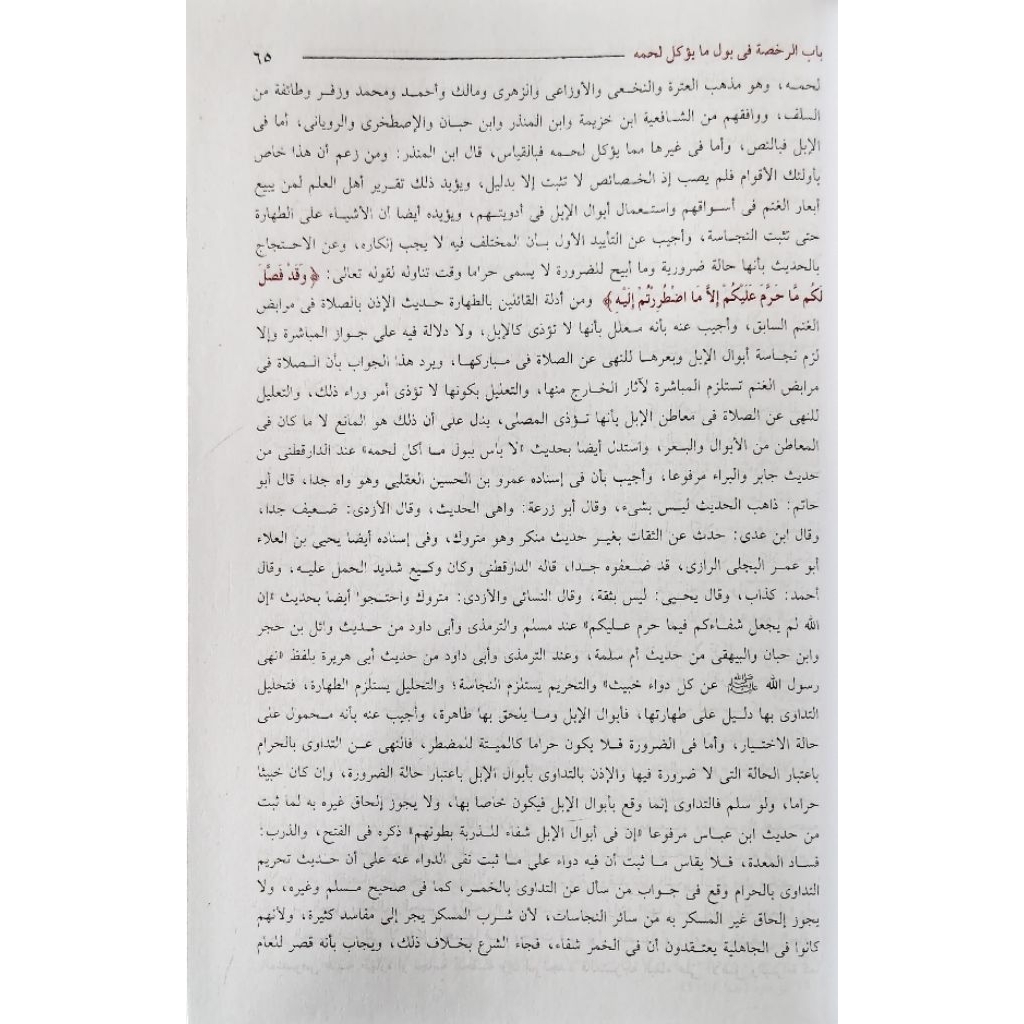 باب الرخصة فى بول ما يؤكل لحمه ٦٥
لحمه، وهو مذهب العترة والنخعى والأوزاعى والزهرى ومالك وأحمد ومحمد وزفر وطائفة من
السلف، ووافقهم من الشافعية ابن خزيمة وابن المنذر وابن حبان والإصطخرى والرويانى، أما فى
الإبل فبالنص، وأما فى غيرها مما يؤكل لحمه فبالقياس، قال ابن المنذر: ومن زعم أن هذا خاص
بأولئك الأقوام فلم يصب إذ الخصائص لا تثبت إلا بدليل، ويؤيد ذلك تقرير أهل العلم لمن يبيع
أبعار الغنم فى أسواقهم واستعمال أبوال الإبل فى أدويتهم، ويؤيده أيضا أن الأشياء على الطهارة
حتى تثبت النجاسة، وأجيب عن التأييد الأول بأن المختلف فيه لا يجب إنكاره، وعن الاحتجاج
بالحديث بأنها حالة ضرورية وما أبيح للضرورة لا يسمى حراما وقت تناوله لقوله تعالى: ﴿وَقَدْ فَصَّلَ
لَكُم مَّا حَرَّمَ عَلَيْكُمْ إِلاَّ مَا اضْطُرِرْتُمْ إِلَيْهِ﴾ ومن أدلة القائلين بالطهارة حديث الإذن بالصلاة فى مرابض
الغنم السابق، وأجيب عنه بأنه معلل بأنها لا تؤذى كالإبل، ولا دلالة فيه على جواز المباشرة وإلا
لزم نجاسة أبوال الإبل وبعرها للنهى عن الصلاة فى مباركها، ويرد هذا الجواب بأن الصلاة فى
مرابض الغنم تستلزم المباشرة لآثار الخارج منها، والتعليل بكونها لا تؤذى أمر وراء ذلك، والتعليل
للنهى عن الصلاة فى معاطن الإبل بأنها تؤذى المصلى، يدل على أن ذلك هو المانع لا ما كان فى
المعاطن من الأبوال والبعر، واستدل أيضا بحديث «لا بأس ببول ما أكل لحمه» عند الدارقطنى من
حديث جابر والبراء مرفوعا، وأجيب بأن فى إسناده عمرو بن الحسين العقلبى وهو واه جدا، قال أبو
حاتم: ذاهب الحديث ليس بشىء، وقال أبو زرعة: واهى الحديث، وقال الأزدى: ضعيف جدا،
وقال ابن عدى: حدث عن الثقات بغير حديث منكر وهو متروك، وفى إسناده أيضا يحيى بن العلاء
أبو عمر البجلى الرازى، قد ضعفوه جدا، قاله الدارقطنى وكان وكيع شديد الحمل عليه، وقال
أحمد: كذاب، وقال يحيى: ليس بثقة، وقال النسائى والأزدى: متروك واحتجوا أيضا بحديث «إن
الله لم يجعل شفاءكم فيما حرم عليكم» عند مسلم والترمذى وأبى داود من حديث وائل بن حجر
وابن حبان والبيهقى من حديث أم سلمة، وعند الترمذى وأبى داود من حديث أبى هريرة بلفظ «نهى
رسول الله ﷺ عن كل دواء خبيث» والتحريم يستلزم النجاسة؛ والتحليل يستلزم الطهارة، فتحليل
التداوى بها دليل على طهارتها، فأبوال الإبل وما يلحق بها طاهرة، وأجيب عنه بأنه محمول على
حالة الاختيار، وأما فى الضرورة فلا يكون حراما كالميتة للمضطر، فالنهى عن التداوى بالحرام
باعتبار الحالة التى لا ضرورة فيها والإذن بالتداوى بأبوال الإبل باعتبار حالة الضرورة، وإن كان خبيثا
حراما، ولو سلم فالتداوى إنما وقع بأبوال الإبل فيكون خاصا بها، ولا يجوز إلحاق غيره به لما ثبت
من حديث ابن عباس مرفوعا «إن فى أبوال الإبل شفاء للذربة بطونهم» ذكره فى الفتح، والذرب:
فساد المعدة، فلا يقاس ما ثبت أن فيه دواء على ما ثبت نفى الدواء عنه على أن حديث تحريم
التداوى بالحرام وقع فى جواب من سأل عن التداوى بالخمر، كما فى صحيح مسلم وغيره، ولا
يجوز إلحاق غير المسكر به من سائر النجاسات، لأن شرب المسكر يجر إلى مفاسد كثيرة، ولأنهم
كانوا فى الجاهلية يعتقدون أن فى الخمر شفاء، فجاء الشرع بخلاف ذلك، ويجاب بأنه قصر للعام